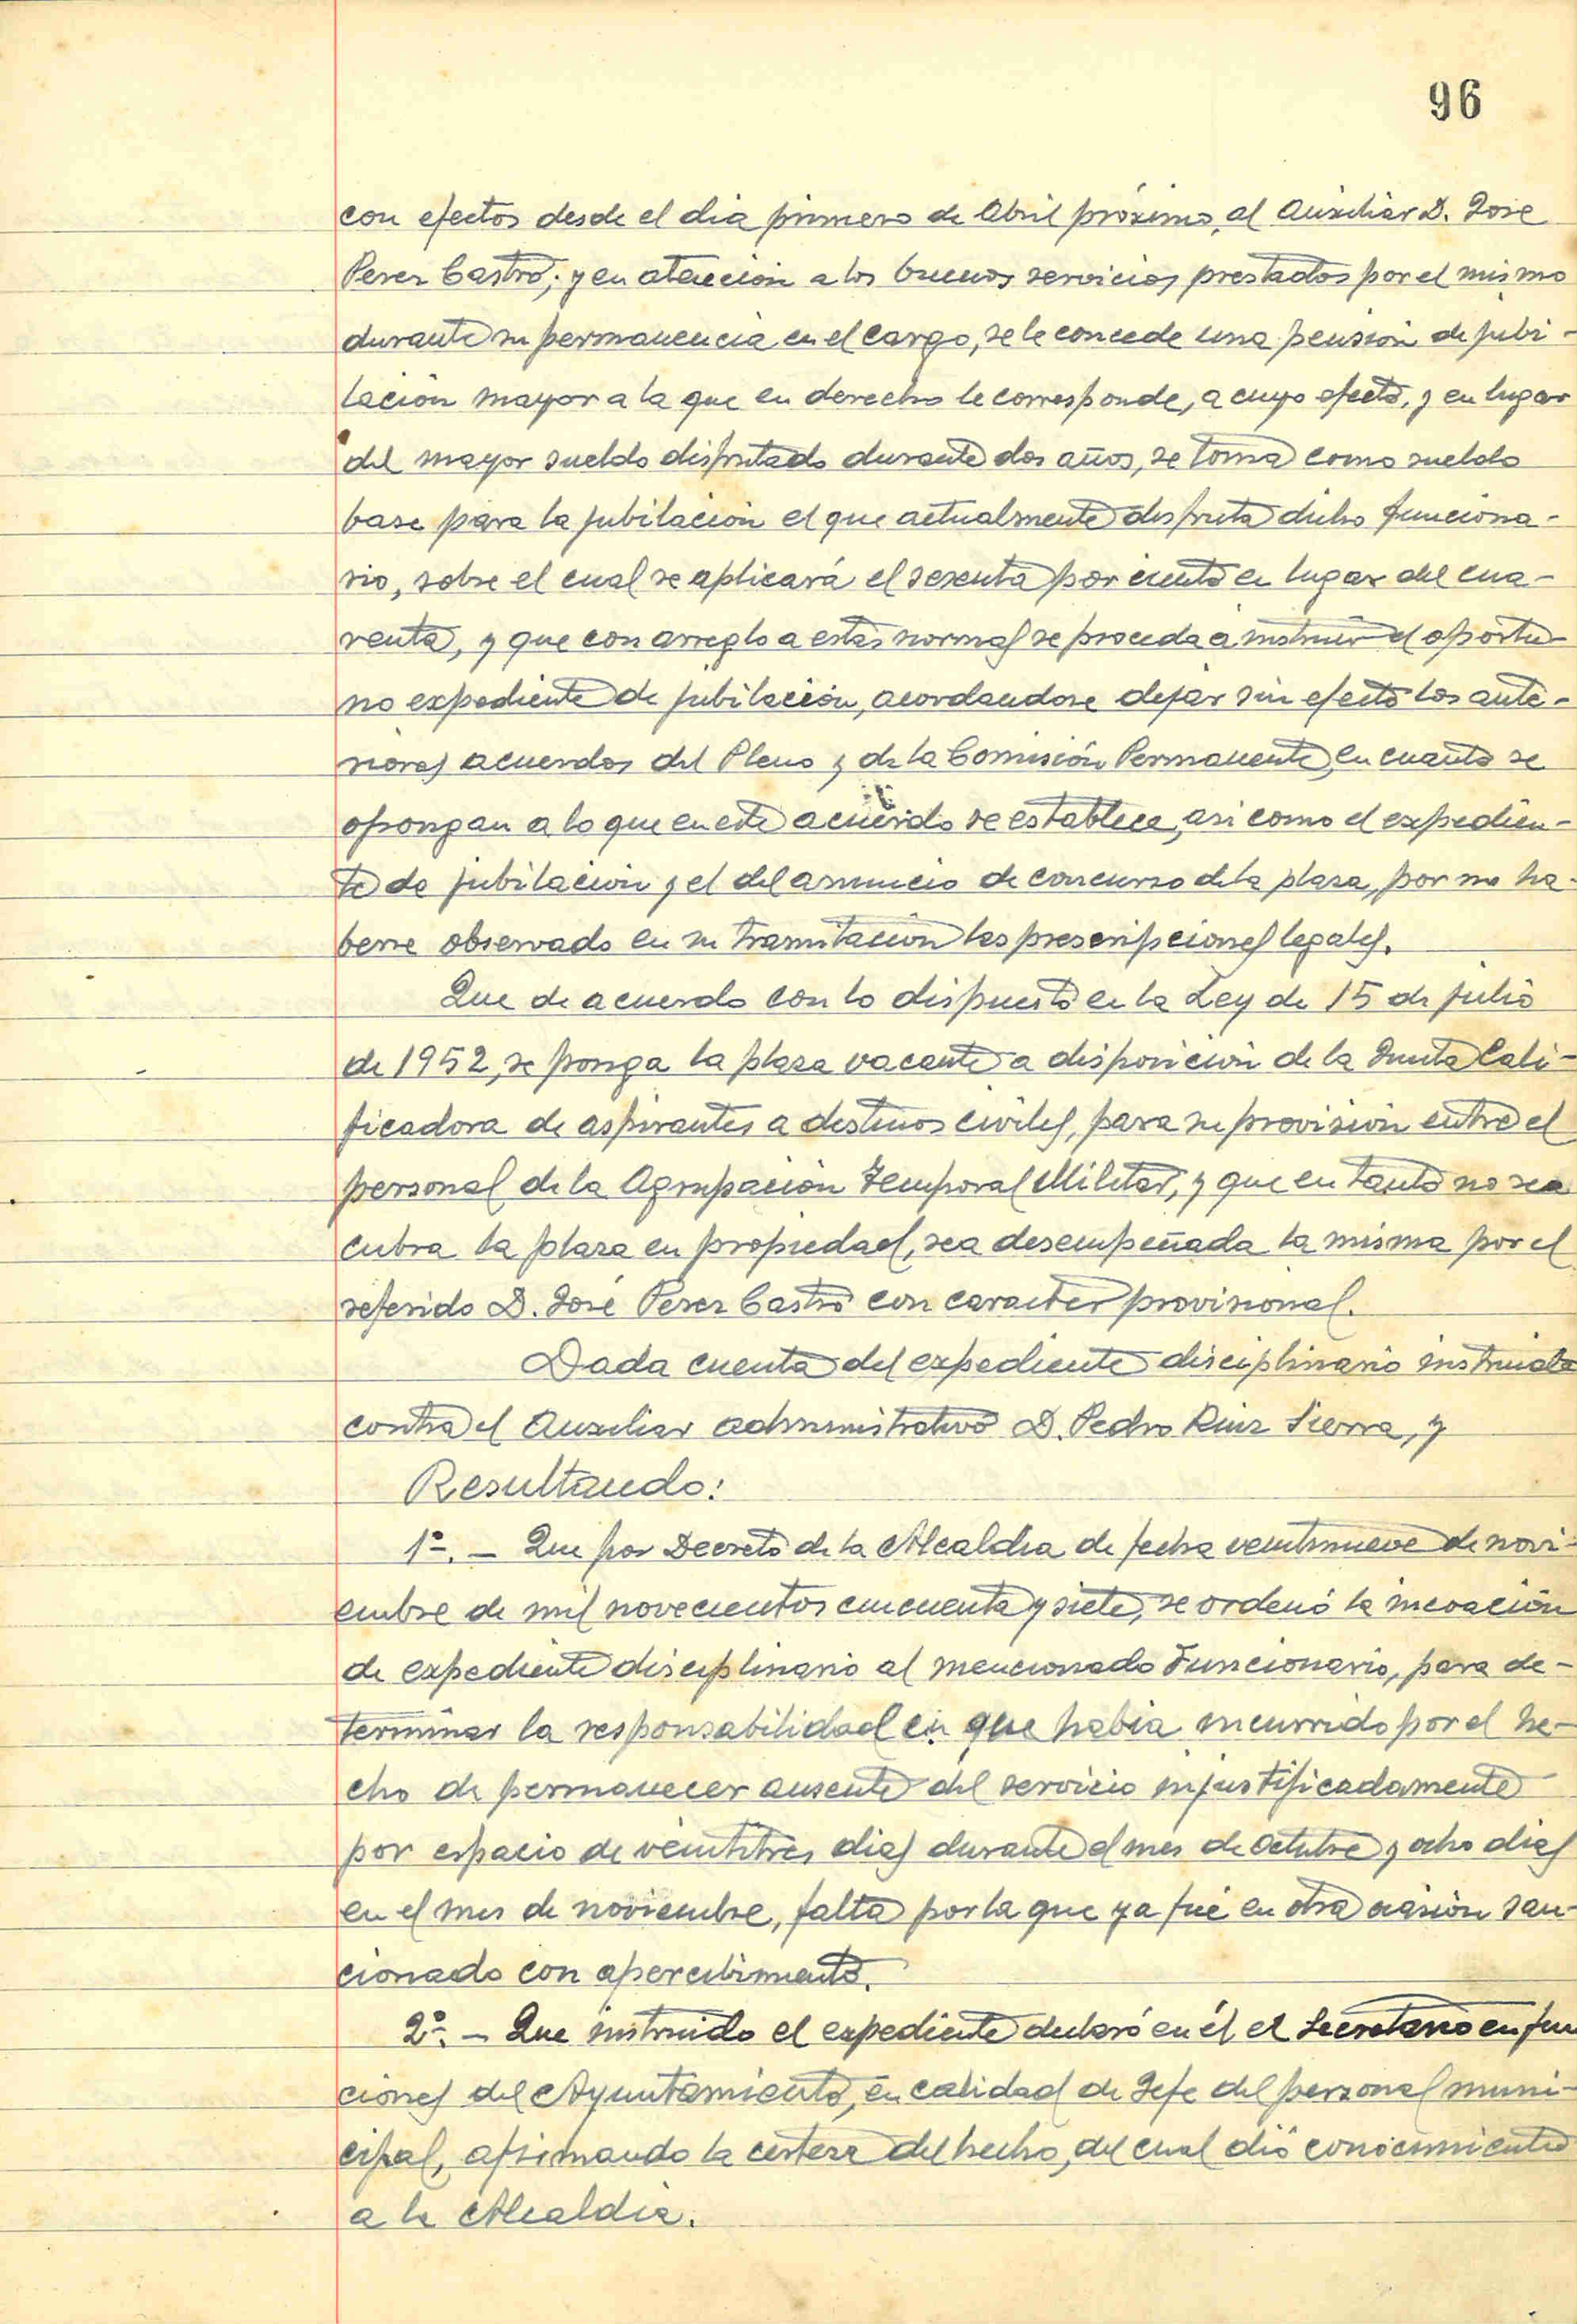 96
con efectos desde el dia primero de Abril próximo, al Auxiliar D. Jose
Perez Castro; y en atención a los buenos servicios prestados por el mismo
durante su permanencia en el cargo, se le concede una pensión de jubi-
lación mayor a la que en derecho le corresponde, a cuyo efecto, y en lugar
del mayor sueldo disfrutado durante dos años, se toma como sueldo
base para la jubilación el que actualmente disfruta dicho funciona-
rio, sobre el cual se aplicará el sesenta por ciento en lugar del cua-
renta, y que con arreglo a estas normas se proceda a instruir el oportu-
no expediente de jubilación, acordandose dejar sin efecto los ante-
riores acuerdos del Pleno y de la Comisión Permanente, en cuanto se
opongan a lo que en este acuerdo se establece, asi como el expedien-
te de jubilación y el del anuncio de concurso de la plaza, por no ha-
berse observado en su tramitación las prescripciones legales.
Que de acuerdo con lo dispuesto en la Ley de 15 de julio
de 1952, se ponga la plaza vacante a disposición de la Junta Cali-
ficadora de aspirantes a destinos civiles, para su provisión entre el
personal de la Agrupación Temporal Militar, y que en tanto no sea
cubra la plaza en propiedad, sea desempeñada la misma por el
referido D. José Perez Castro con caracter provisional.
Dada cuenta del expediente disciplinario instruido
contra el Auxiliar administrativo D. Pedro Ruiz Sierra, y
Resultando:
1º. - Que por Decreto de la Alcaldia de fecha veintinueve de novi-
embre de mil novecientos cincuenta y siete, se ordenó la incoación
de expediente disciplinario al mencionado Funcionario, para de-
terminar la responsabilidad en que habia incurrido por el he-
cho de permanecer ausente del servicio injustificadamente
por espacio de veintitres dias durante el mes de octubre y ocho dias
en el mes de noviembre, falta por la que ya fué en otra ocasión san-
cionado con apercibimiento.
2º. - Que instruido el expediente declaró en él el Secretario en fun
ciones del Ayuntamiento, en calidad de Jefe del personal muni-
cipal, afirmando la certeza del hecho, del cual dió conocimiento
a la Alcaldia.